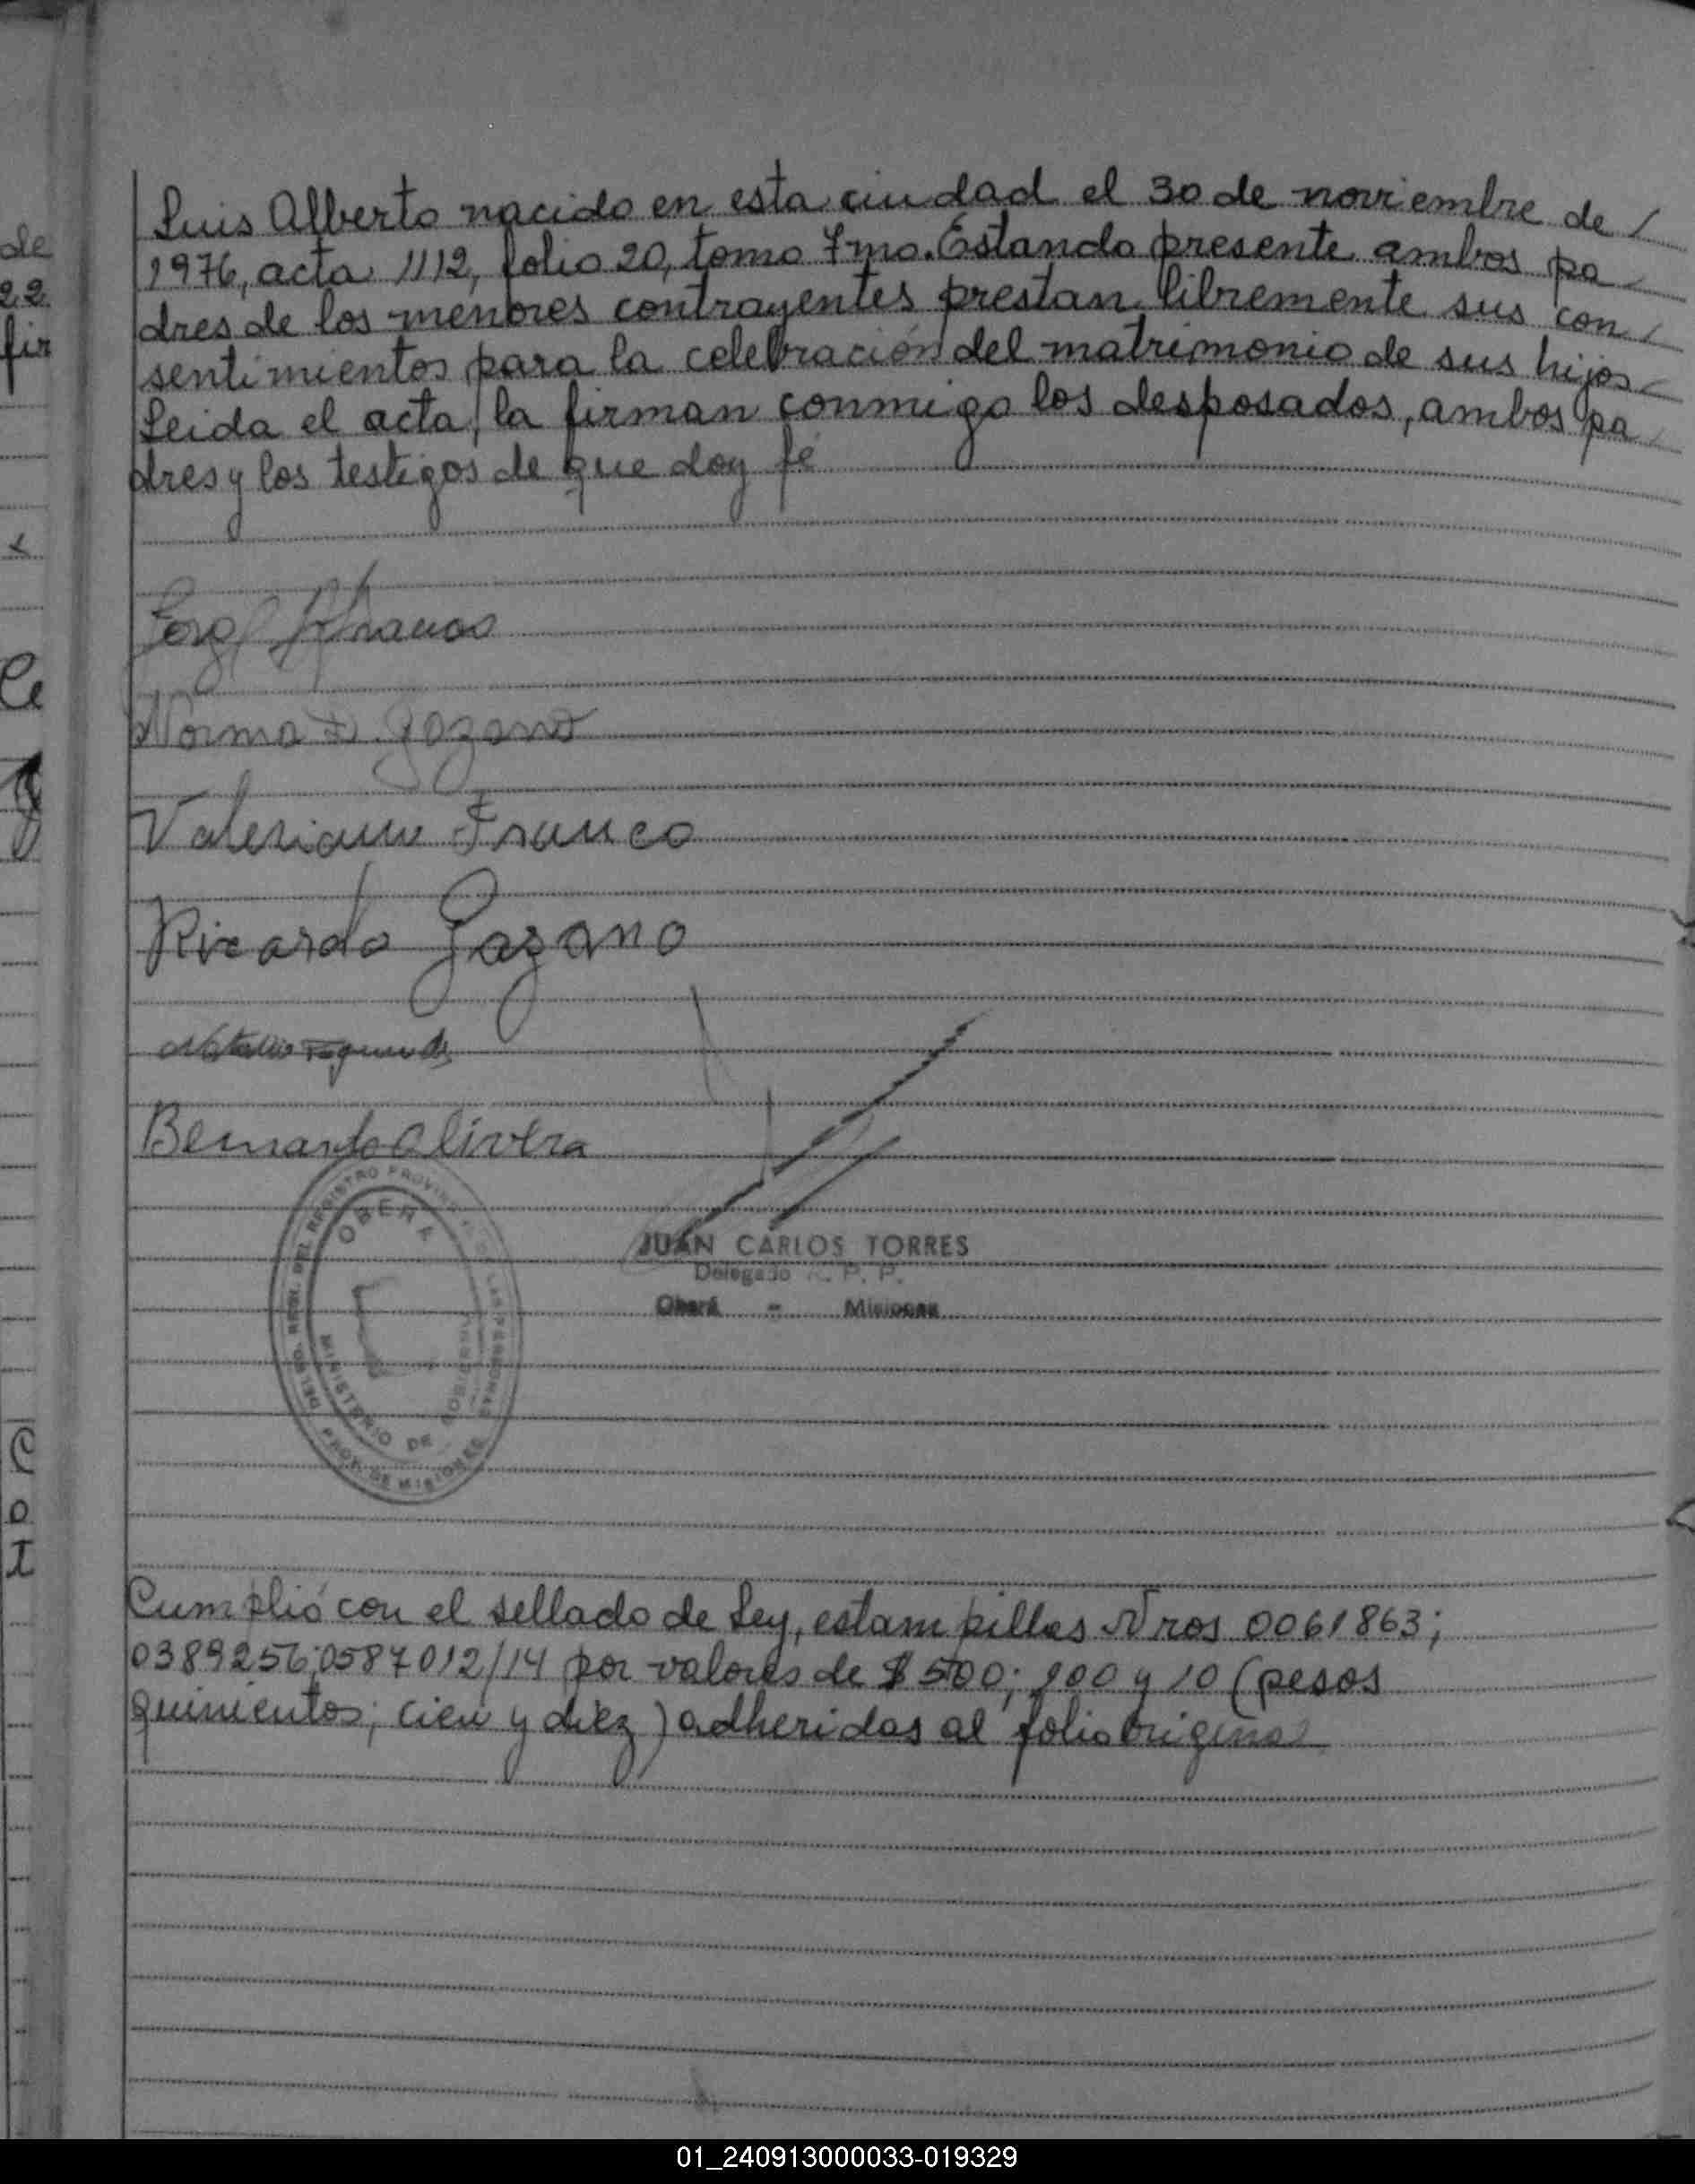 Luis Alberto nacido en esta ciudad el 30 de noviembre de /
1976, acta 1112, folio 20, tomo 7mo. Estando presente ambos pa
dres de los menores contrayentes prestan libremente sus con /
sentimientos para la celebración del matrimonio de sus hijos
Leida el acta, la firman conmigo los desposados, ambos pa
dres y los testigos de que doy fé
Norma
Valeriano Franco
Ricardo Gazano
Bernardo Olivera
DEL REGISTRO PROVINCIAL DE LAS PERSONAS
OBERA
MINISTERIO DE GOBIERNO
PROV. DE MISIONES
JUAN CARLOS TORRES
Delegado R. P. P.
Oberá - Misiones
Cumplió con el sellado de Ley, estampillas Nros 0061863;
0389256; 0587012/14 por valores de $ 500; 100 y 10 (pesos
quinientos; cien y diez) adheridas al folio original
de
22
fir
01_240913000033-019329